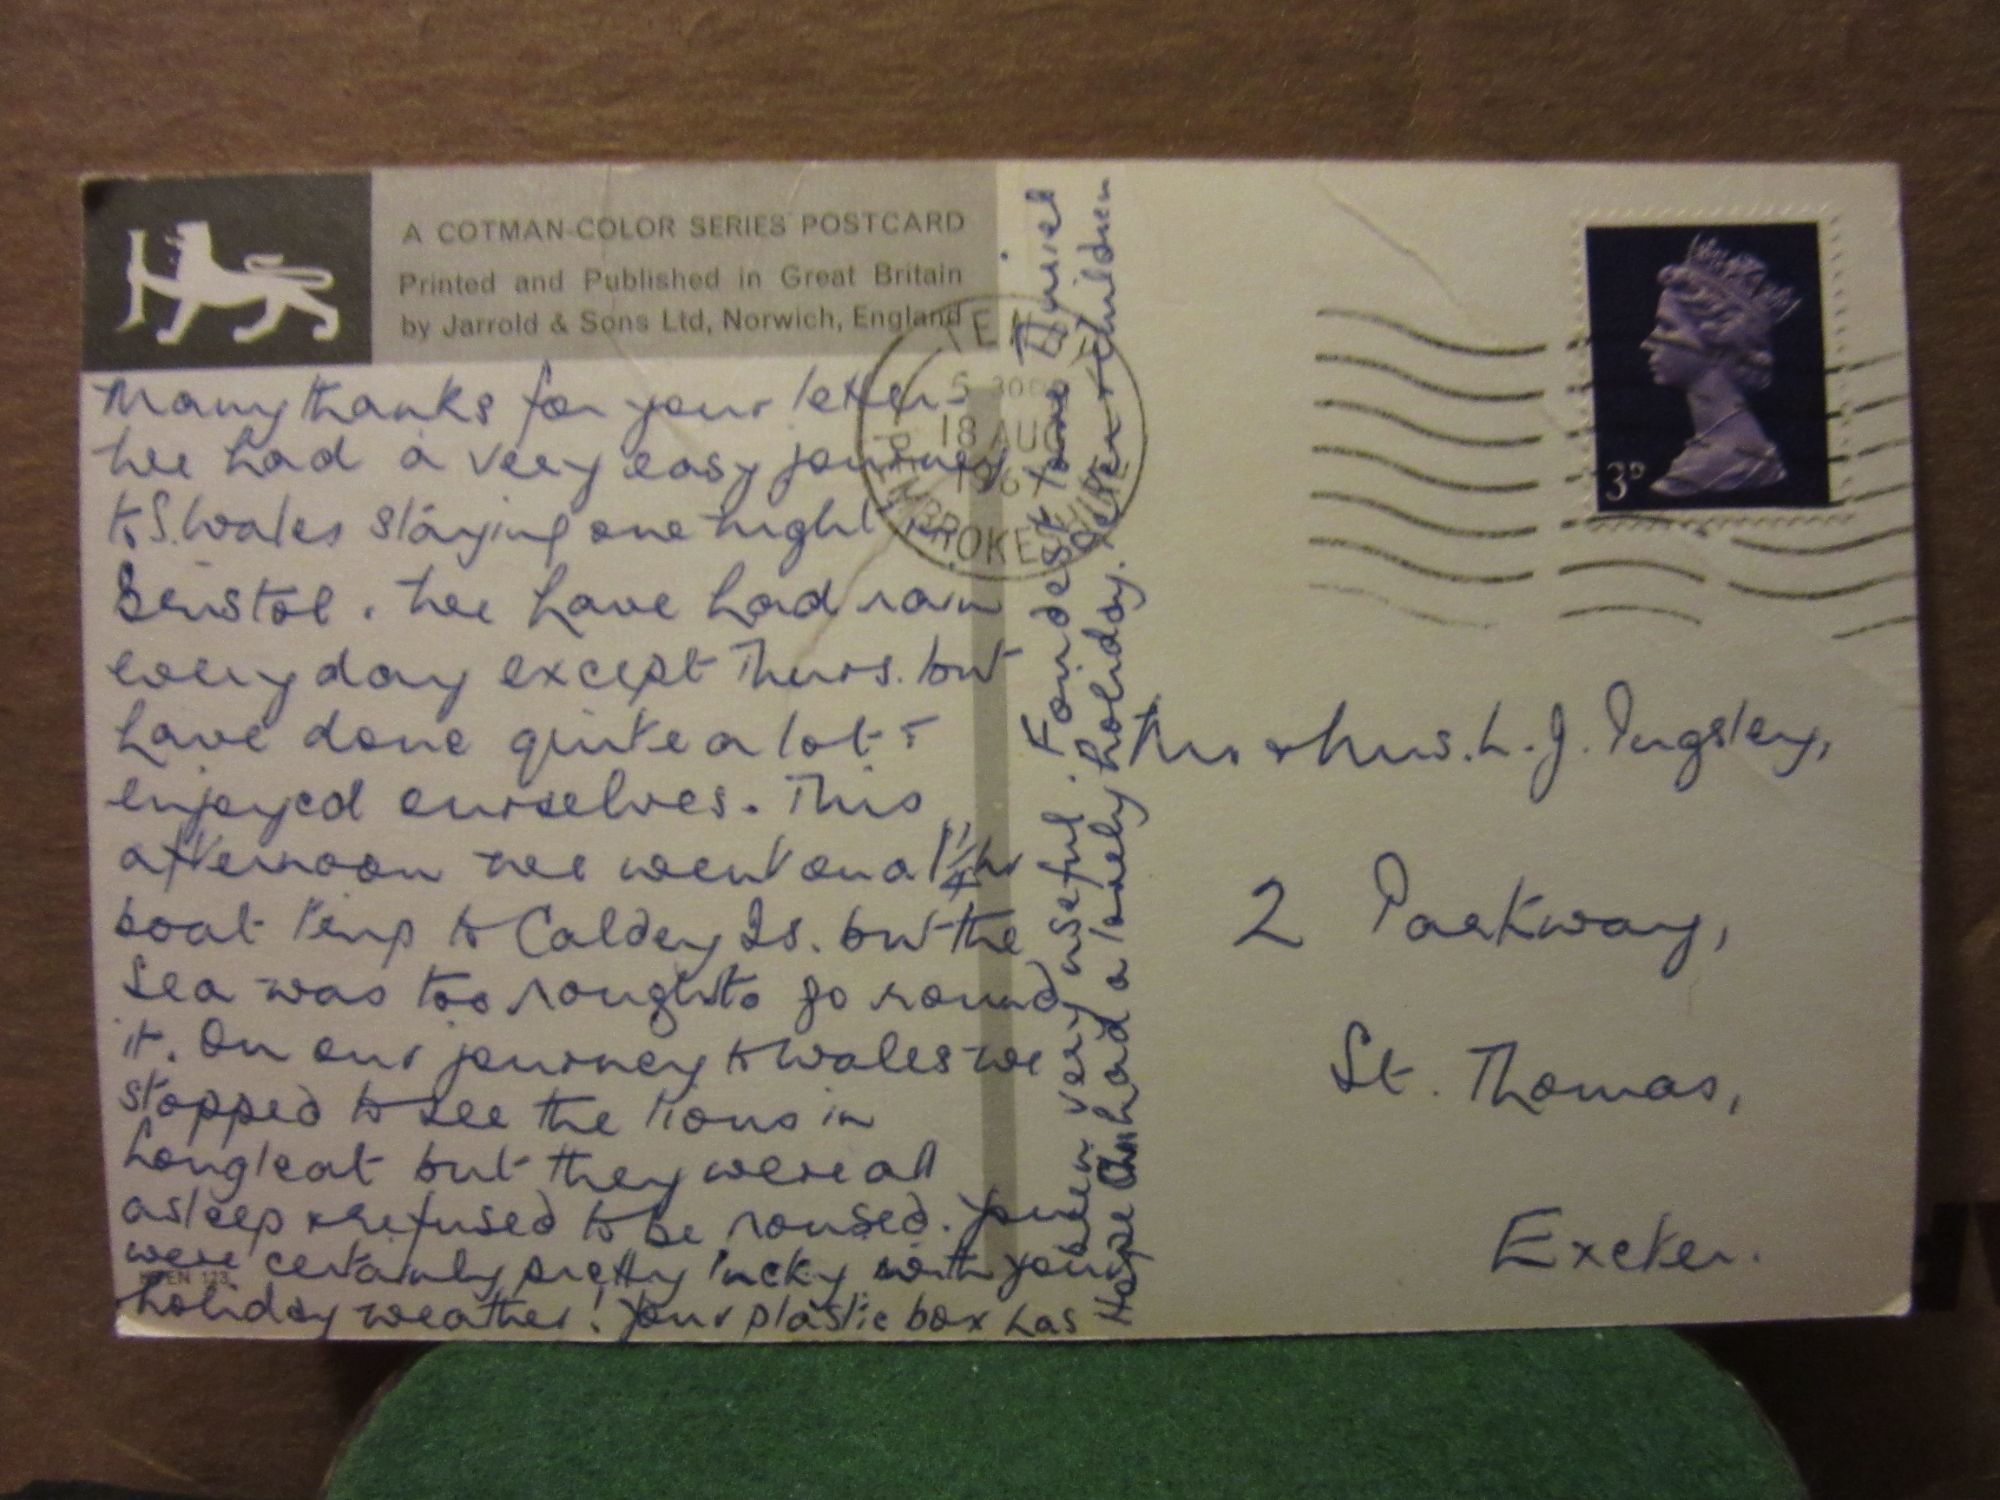 A COTMAN-COLOR SERIES POSTCARD
Printed and Published in Great Britain
by Jarrold & Sons Ltd, Norwich, England
Many thanks for your letter
We had a very easy journey
to S. Wales staying one night in
Bristol. We have had rain
every day except Thurs. but
have done quite a lot &
enjoyed ourselves. This
afternoon we went on a 1 1/4 hr
boat trip to Caldey Is. but the
sea was too rough to go round
it. On our journey to Wales we
stopped to see the lions in
Longleat but they were all
asleep & refused to be roused. You
were certainly pretty lucky with your
holiday weather! Your plastic box has
been very useful. Fondest love Muriel
Hope had a lovely holiday. & children
TEN
5 30
18 AUG
196
PEMBROKESHIRE
3D
Mr & Mrs. L. J. Pugsley,
2 Parkway,
St. Thomas,
Exeter.